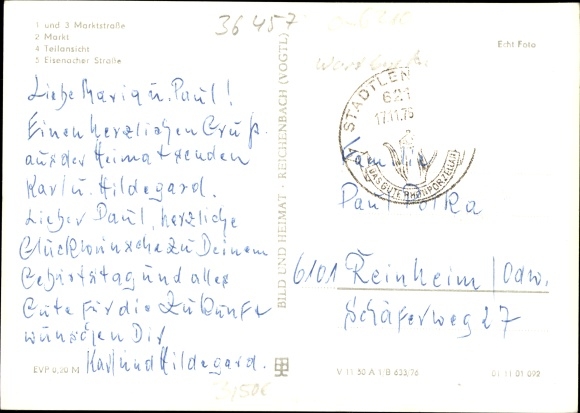 36457
1 und 3 Marktstraße
2 Markt
4 Teilansicht
5 Eisenacher Straße
Echt Foto
Liebe Maria u. Paul!
Einen herzlichen Gruß
aus der Heimat senden
Karl u. Hildegard.
Lieber Paul, herzliche
Glückwünsche zu Deinem
Geburtstag und alles
Gute für die Zukunft
wünschen Dir
Karl und Hildegard.
EVP 0,20 M
BILD UND HEIMAT · REICHENBACH (VOGTL)
STADTLEN
621
17.11.76
DAS GUTE RHÖNPORZELLAN
Paul
6101 Reinheim / Odw.
Schäferweg 27
V 11 50 A 1 B 633/76
01 11 01 092